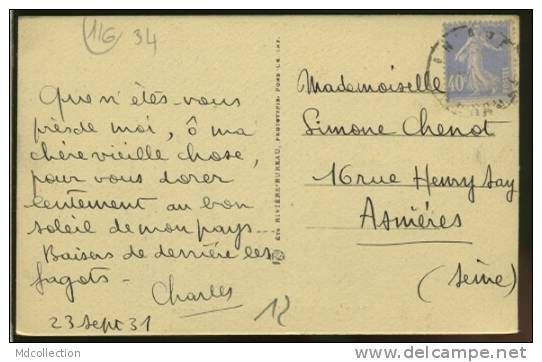 116 34
Que n'êtes-vous
près de moi, ô ma
chère vieille chose,
pour vous dorer
lentement au bon
soleil de mon pays...
Baisers de derrière les
fagots -
Charles
23 sept 31
Ets RIVIÈRE-BUREAU, PHOTOTYPIE FONS-LE
Mademoiselle
Simone Chenot
16 rue Henry Say
Asnières
(Seine)
12
40
Mdcollection
http://www.delcampe.net